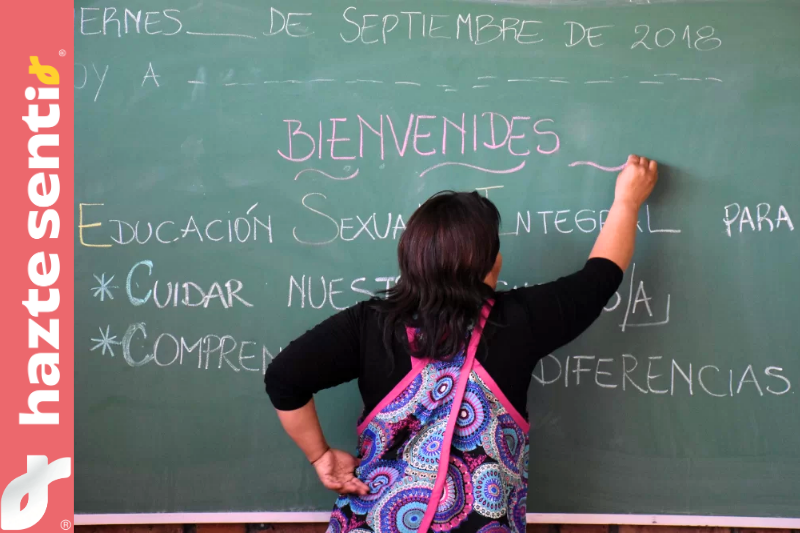 hazte sentir
DE SEPTIEMBRE DE 2018
A
BIENVENIDES
EDUCACIÓN SEXUA INTEGRAL PARA
* CUIDAR NUEST O/A
* COMPREN DIFERENCIAS.